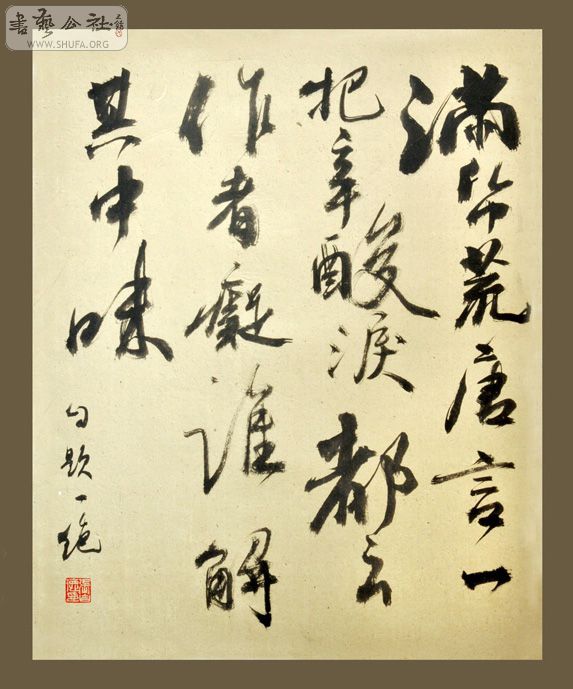 書藝公社
WWW.SHUFA.ORG
滿帋荒唐言一
把辛酸淚都云
作者癡誰解
其中味
自題一絕